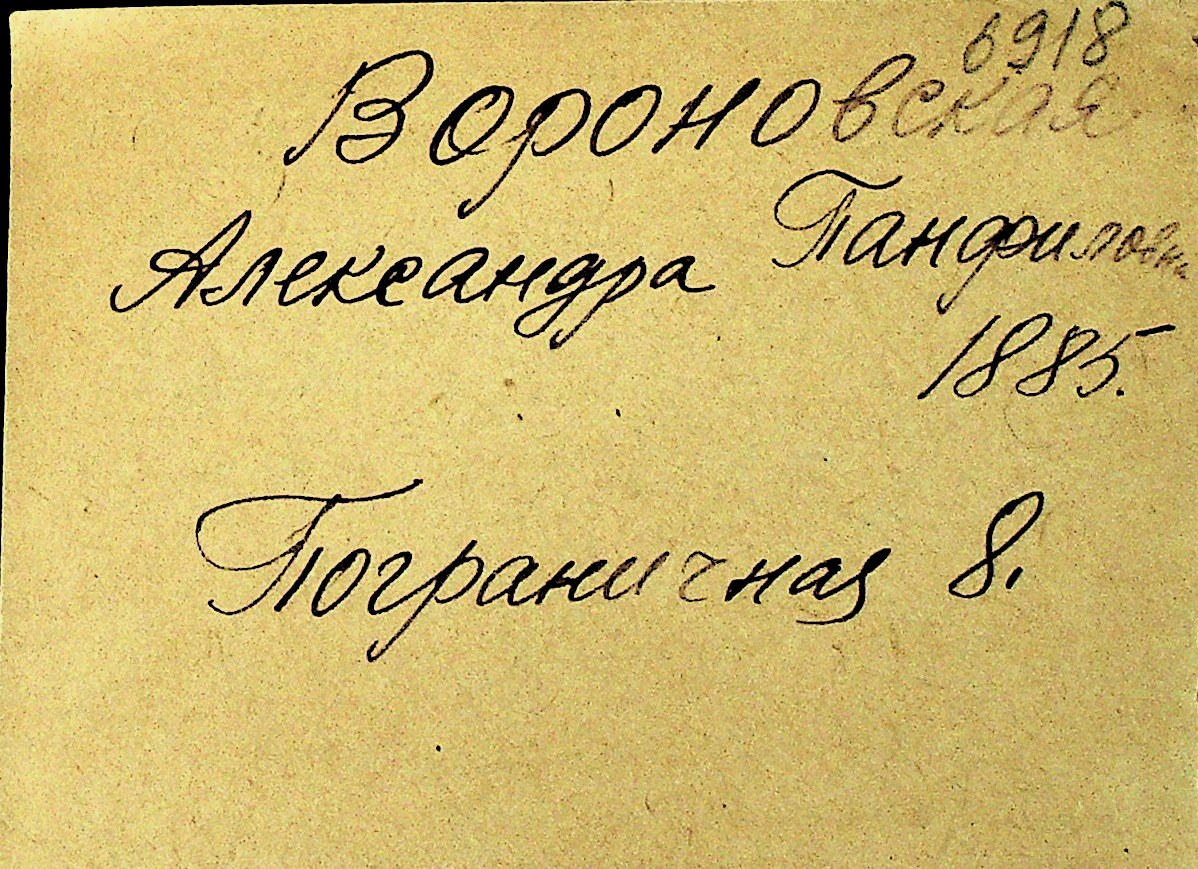 6918
Вороновская
Александра Панфиловна
1885.
Пограничная 8.